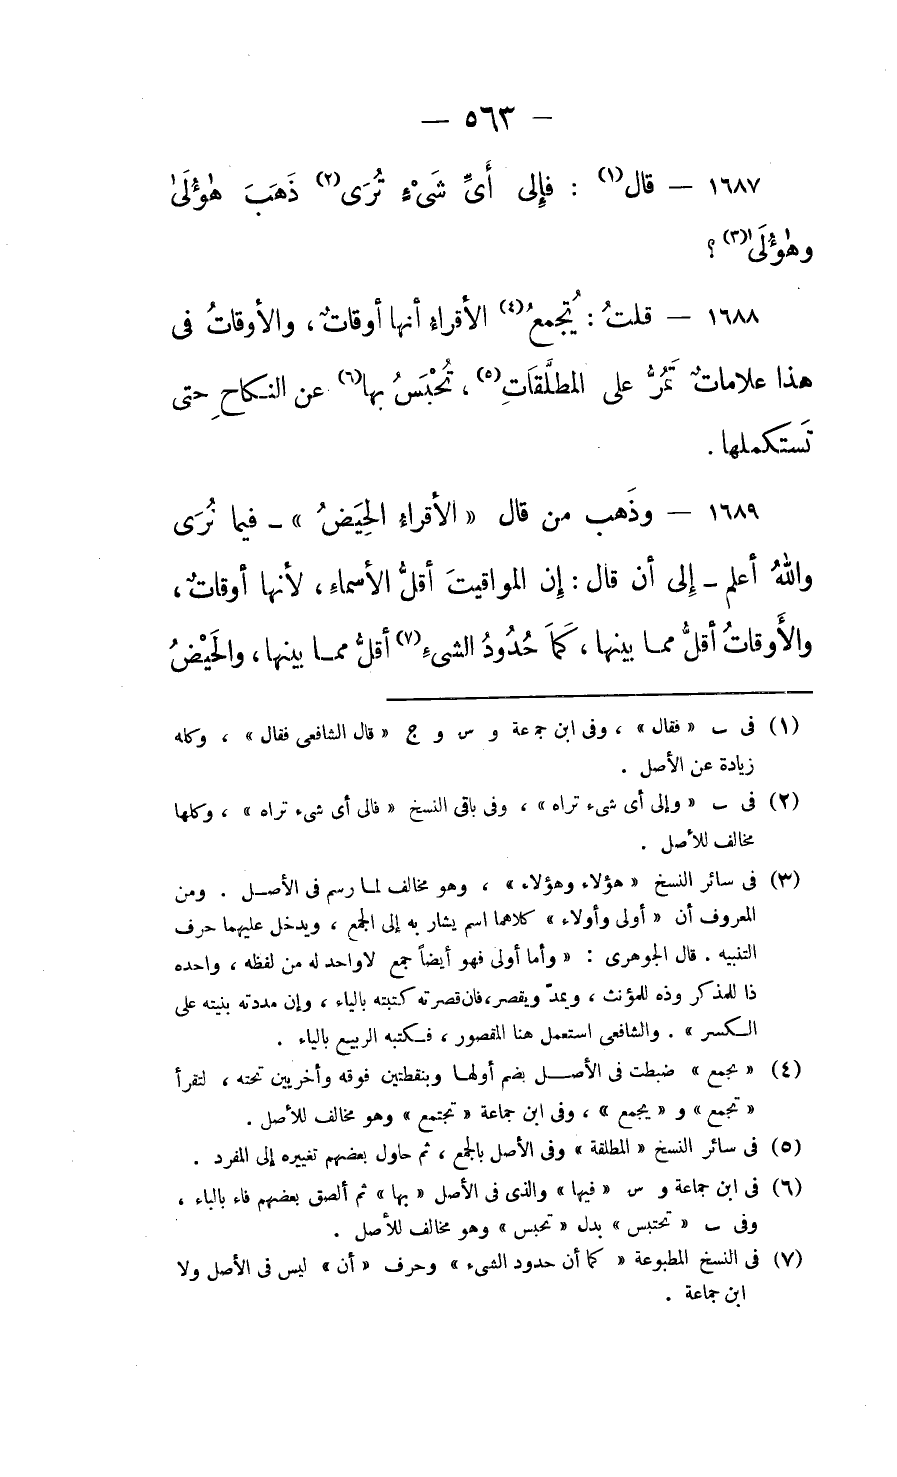 — ٥٦٣ —
١٦٨٧ — قال(١) : فإِلى أَىِّ شَىْءٍ تُرَى(٢) ذَهَبَ هٰؤُلَىٰ
وهٰؤُلَىٰ(٣) ؟
١٦٨٨ — قلتُ : يُتجمعُ(٤) الأقراءِ أنها أوقاتٌ ، والأوقاتُ فى
هذا علاماتٌ تَمُرُّ على المطلَّقَاتِ(٥) ، تُحْبَسُ بها(٦) عن النكاحِ حتى
تَستكملها .
١٦٨٩ — وذَهب من قال « الأقراءِ الحِيَضُ » ـ فيما نُرَى
واللهُ أعلم ـ إِلى أن قال : إِن المواقيتَ أقلُّ الأسماءِ ، لأنها أوقاتٌ ،
والأَوقاتُ أقلُّ مما بينها ، كَمَا حُدُودُ الشىءِ(٧) أقلُّ مما بينها ، والحَيْضُ
(١) فى ب « فقال » ، وفى ابن جمعة و س و ج « قال الشافعى فقال » ، وكله
زيادة عن الأصل .
(٢) فى ب « وإلى أى شىء تراه » ، وفى باقى النسخ « فالى أى شىء تراه » ، وكلها
مخالف للأصل .
(٣) فى سائر النسخ « هؤلاء وهؤلاء » ، وهو مخالف لما رسم فى الأصل . ومن
المعروف أن « أولى وأولاء » كلاهما اسم يشار به إلى الجمع ، ويدخل عليهما حرف
التنبيه . قال الجوهرى : « وأما أولى فهو أيضاً جمع لاواحد له من لفظه ، واحده
ذا للمذكر وذه للمؤنث ، ويمدّ ويقصر ، فان قصرته كتبته بالياء ، وإن مددته بنيته على
الكسر » . والشافعى استعمل هنا المقصور ، فكتبه الربيع بالياء .
(٤) « يجمع » ضبطت فى الأصل بضم أولها وبنقطتين فوقه وأخريين تحته ، لتقرأ
« تجمع » و « يجمع » ، وفى ابن جماعة « تجتمع » وهو مخالف للأصل .
(٥) فى سائر النسخ « المطلقة » وفى الأصل بالجمع ، ثم حاول بعضهم تغييره إلى المفرد .
(٦) فى ابن جماعة و س « فيها » والذى فى الأصل « بها » ثم ألصق بعضهم فاء بالباء ،
وفى ب « تحتبس » بدل « تحبس » وهو مخالف للأصل .
(٧) فى النسخ المطبوعة « كما أن حدود الشىء » وحرف « أن » ليس فى الأصل ولا
ابن جماعة .